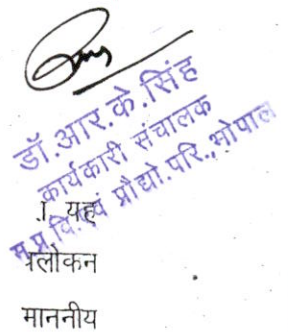 डॉ.आर.के.सिंह
कार्यकारी संचालक
म.प्र.वि.एवं प्रौद्यो.परि.,भोपाल
। यह
लोकन
माननीय